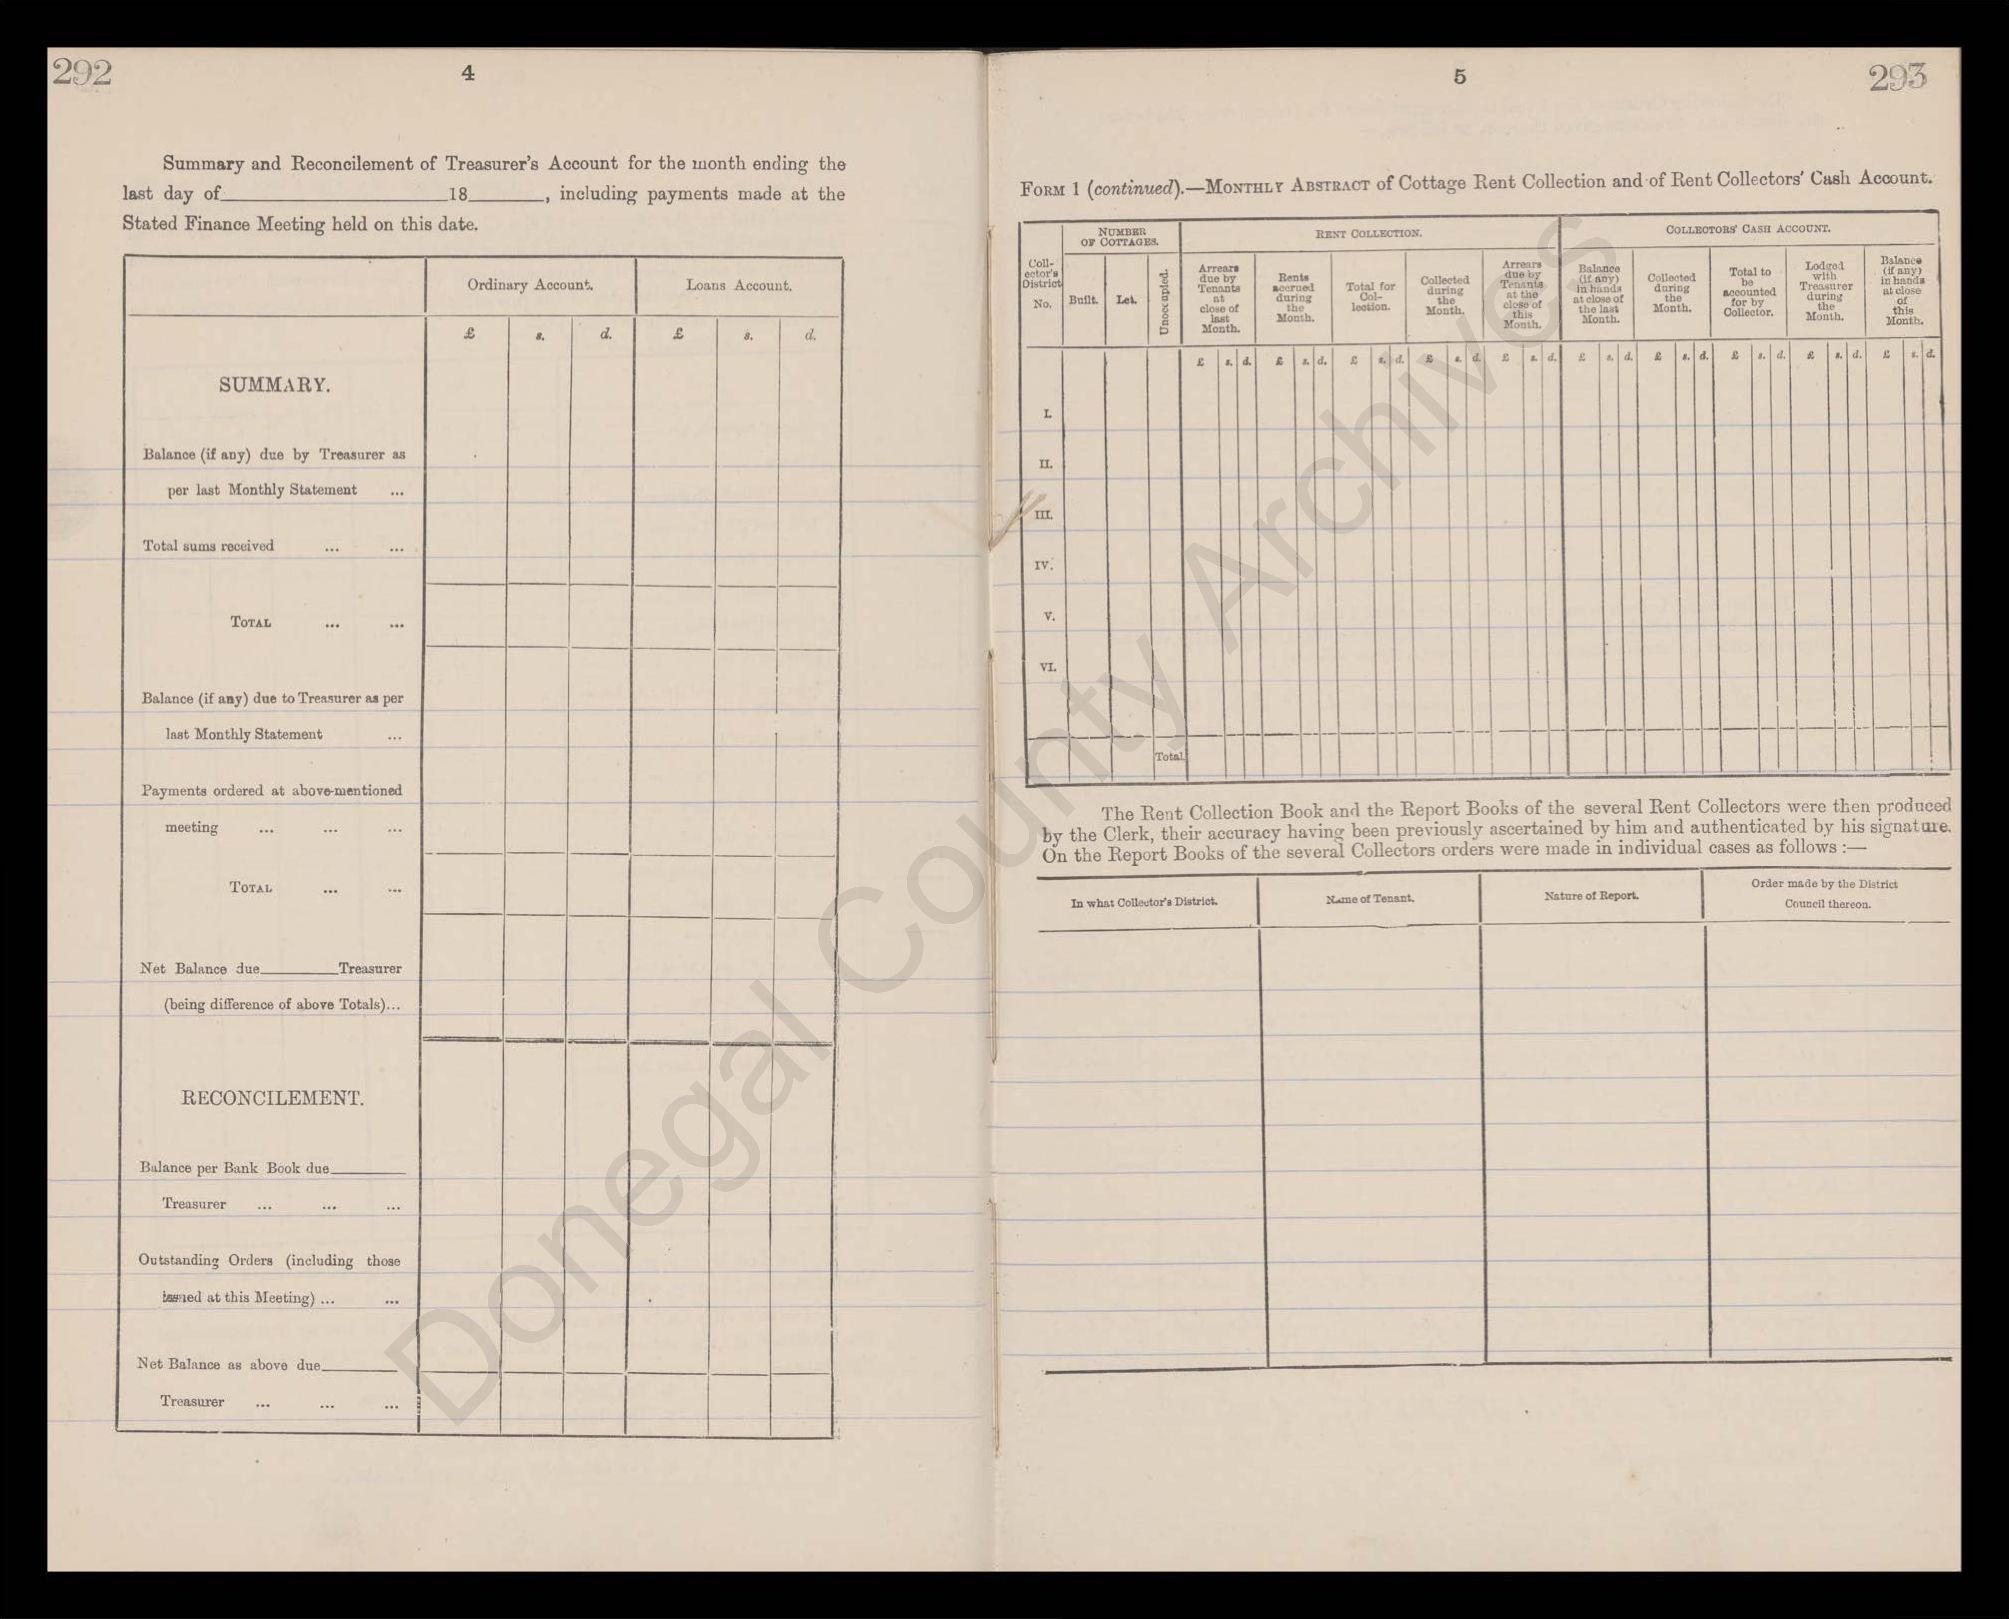 292
4
Summary and Reconcilement of Treasurer's Account for the month ending the
last day of 18 , including payments made at the
Stated Finance Meeting held on this date.
Ordinary Account. Loans Account.
£ s. d. £ s. d.
SUMMARY.
Balance (if any) due by Treasurer as
per last Monthly Statement ...
Total sums received ... ...
TOTAL ... ...
Balance (if any) due to Treasurer as per
last Monthly Statement ...
Payments ordered at above-mentioned
meeting ... ... ...
TOTAL ... ...
Net Balance due Treasurer
(being difference of above Totals)...
RECONCILEMENT.
Balance per Bank Book due
Treasurer ... ... ...
Outstanding Orders (including those
issued at this Meeting) ... ...
Net Balance as above due
Treasurer ... ... ...
5
293
FORM 1 (continued).—MONTHLY ABSTRACT of Cottage Rent Collection and of Rent Collectors' Cash Account.
Coll-
ector's
District
No.
NUMBER
OF COTTAGES.
Built. Let. Unoccupied.
RENT COLLECTION.
Arrears
due by
Tenants
at
close of
last
Month.
Rents
accrued
during
the
Month.
Total for
Col-
lection.
Collected
during
the
Month.
Arrears
due by
Tenants
at the
close of
this
Month.
COLLECTORS' CASH ACCOUNT.
Balance
(if any)
in hands
at close of
the last
Month.
Collected
during
the
Month.
Total to
be
accounted
for by
Collector.
Lodged
with
Treasurer
during
the
Month.
Balance
(if any)
in hands
at close
of
this
Month.
£ s. d. £ s. d. £ s. d. £ s. d. £ s. d. £ s. d. £ s. d. £ s. d. £ s. d. £ s. d.
I.
II.
III.
IV.
V.
VI.
Total.
The Rent Collection Book and the Report Books of the several Rent Collectors were then produced
by the Clerk, their accuracy having been previously ascertained by him and authenticated by his signature.
On the Report Books of the several Collectors orders were made in individual cases as follows :—
In what Collector's District. Name of Tenant. Nature of Report. Order made by the District
Council thereon.
Donegal County Archives